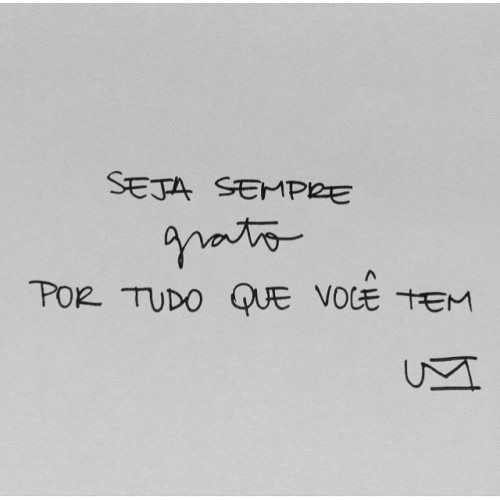 SEJA SEMPRE
grato
POR TUDO QUE VOCÊ TEM